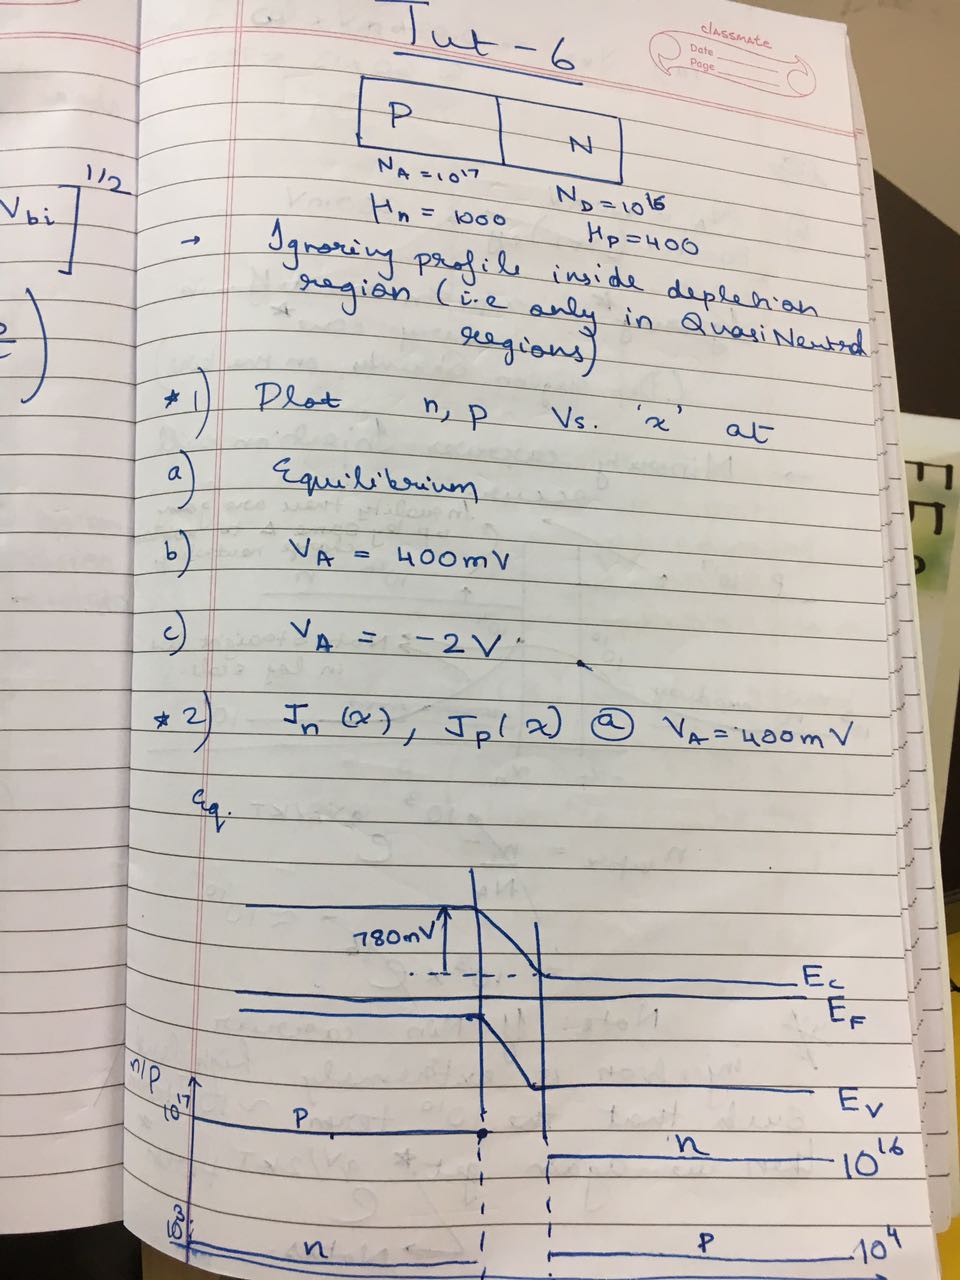 Tut - 6
classmate
Date
Page
P
N
N_A = 10^17
N_D = 10^16
μ_n = 1000
μ_p = 400
V_bi ]^1/2
→ Ignoring profile inside depletion
region (i.e only in QuasiNeutral
regions)
* 1) Plot n, p Vs. 'x' at
a) Equilibrium
b) V_A = 400mV
c) V_A = -2V
* 2) J_n (x), J_p (x) @ V_A = 400mV
Eq.
780mV
E_C
E_F
E_V
n/p
10^17
p
n
10^16
10^3
n
p
10^4